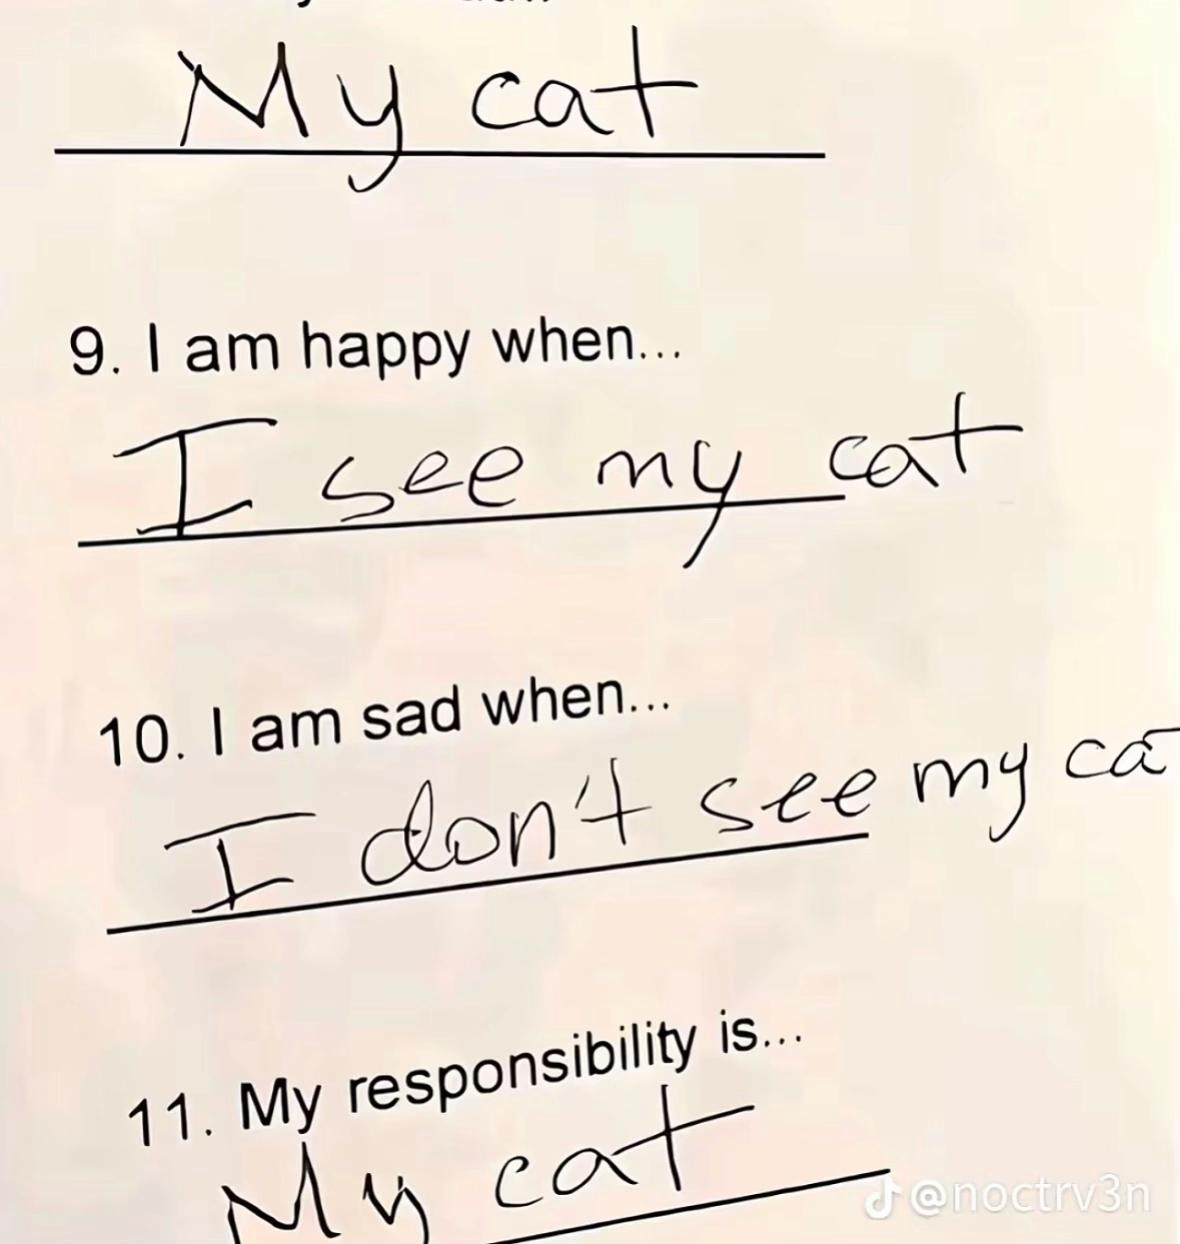 My cat
9. I am happy when...
I see my cat
10. I am sad when...
I don't see my
11. My responsibility is...
My cat
@noctrv3n